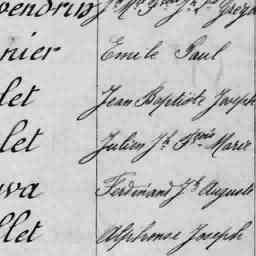 vendrin Jh Md Fois Jn Bte Grego
nier Emile Paul
let Jean Baptiste Joseph
let Julien Jh Fçois Marie
wa Ferdinand Jh Auguste
llet Alphonse Joseph